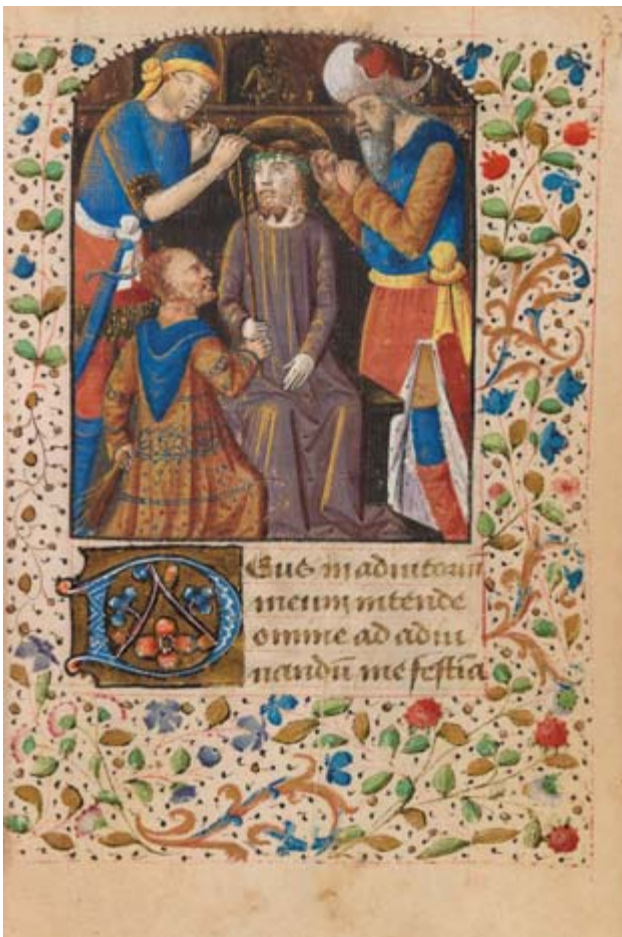 Deus in adiutoriū
meum intende
domine ad adiu
uandū me festina